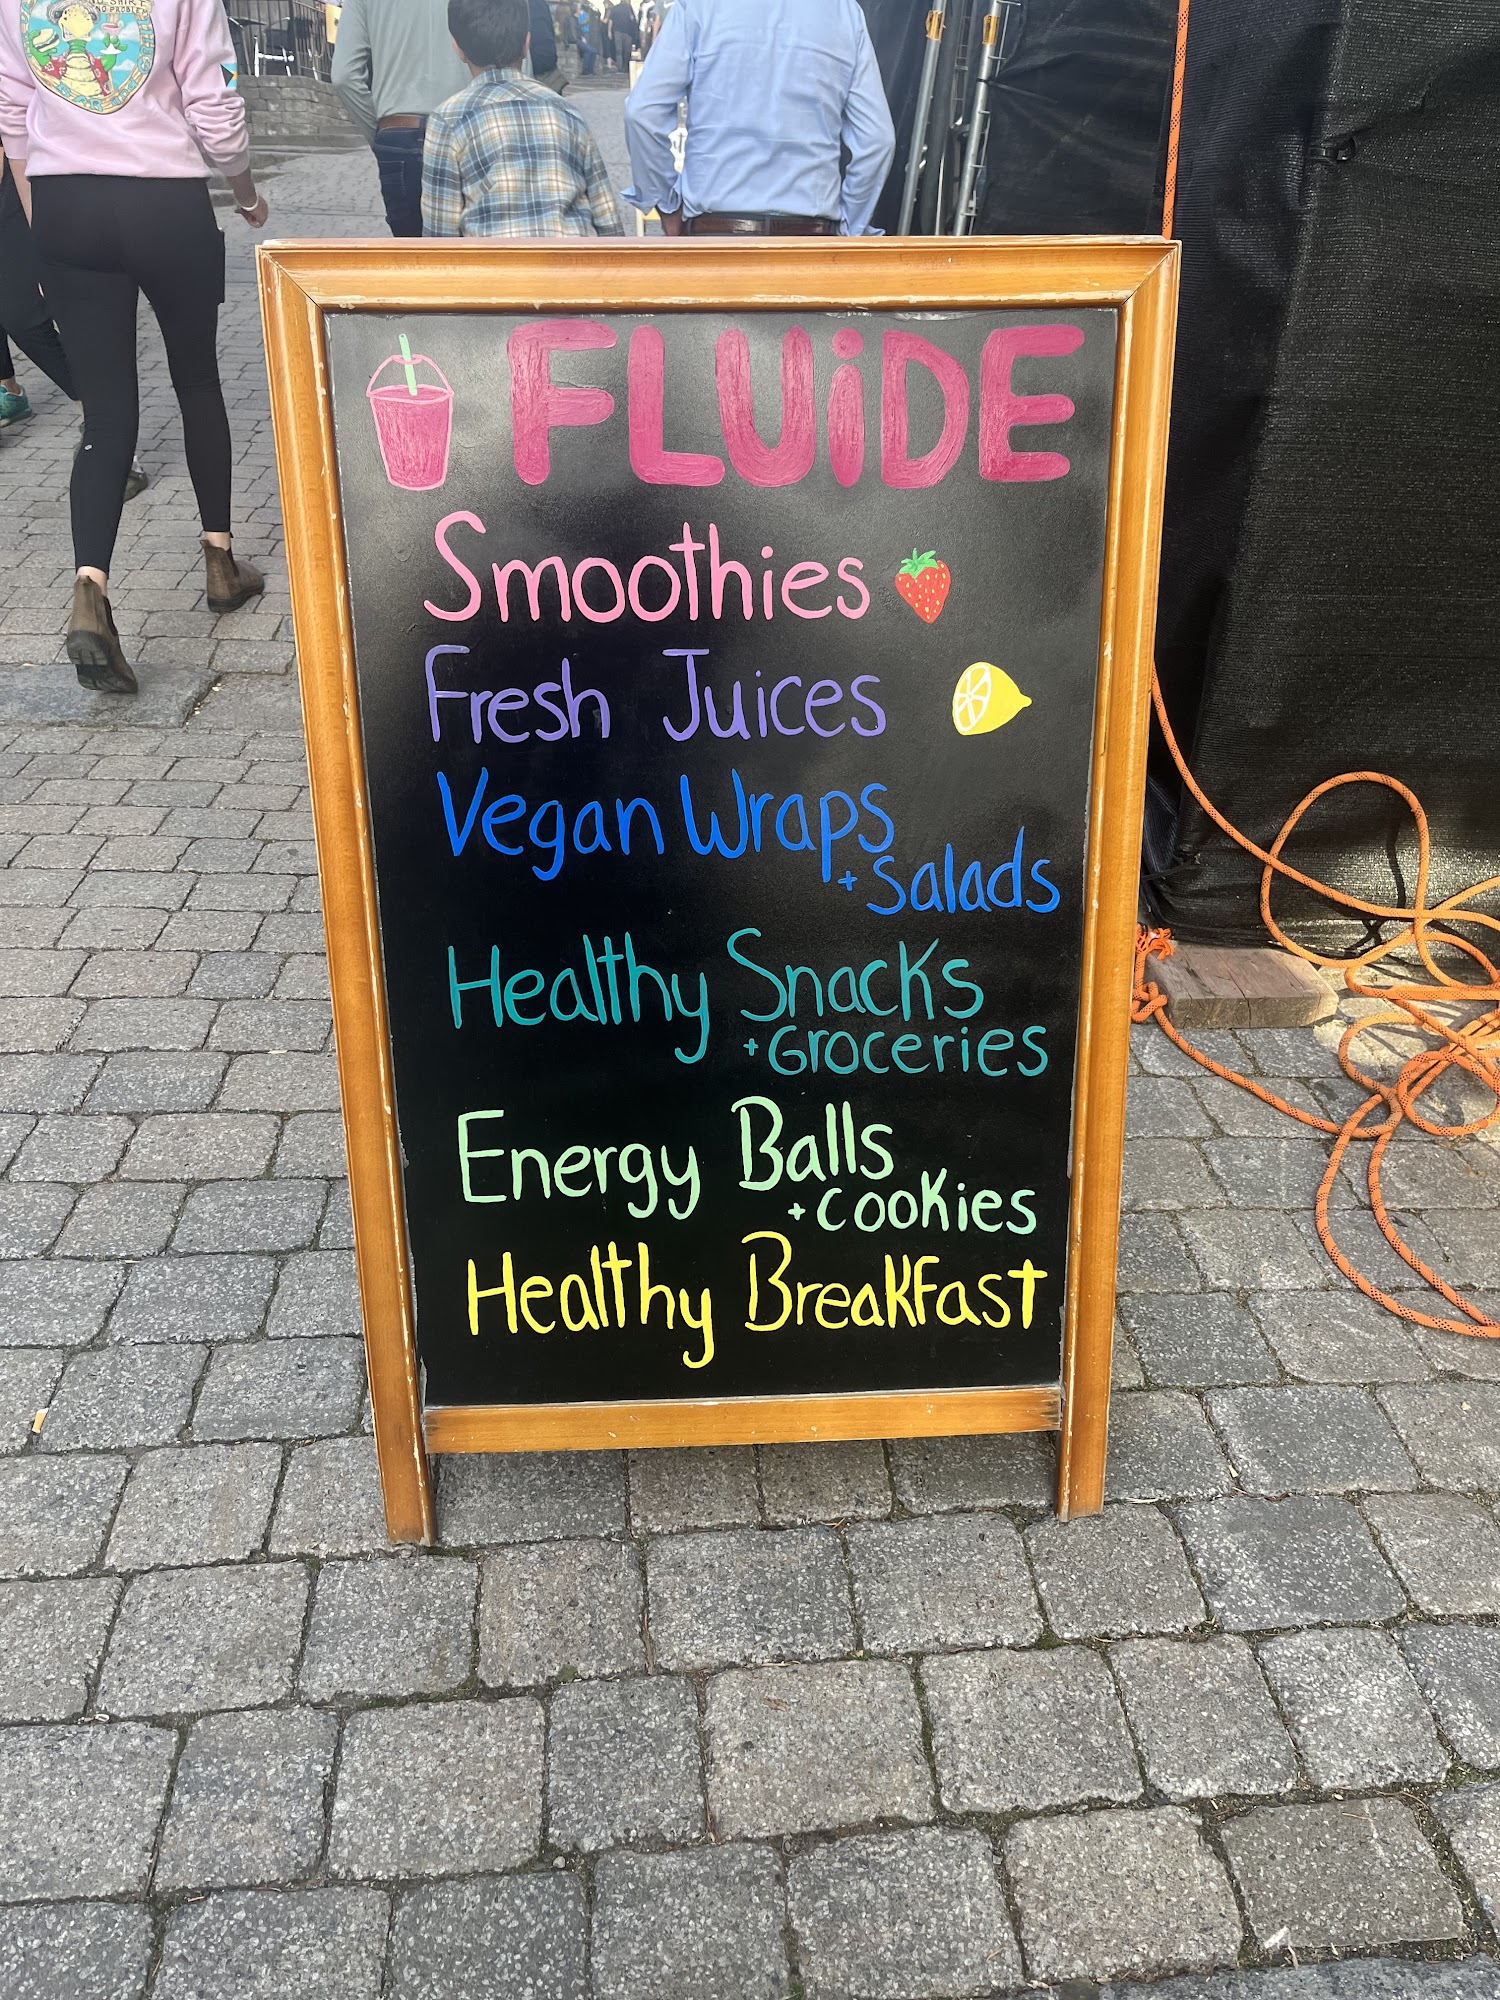 NO SHIRT
NO PROBLEM
FLUiDE
Smoothies
Fresh Juices
Vegan Wraps
+ Salads
Healthy Snacks
+ Groceries
Energy Balls
+ Cookies
Healthy Breakfast